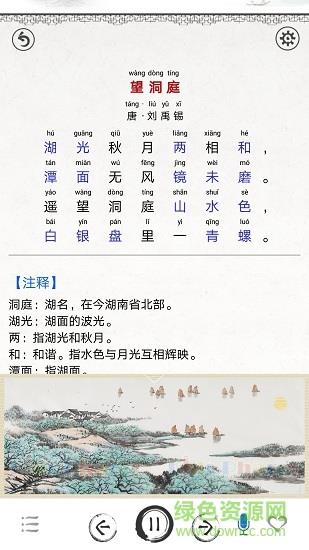 wàng dòng tíng
望洞庭
táng · liú yǔ xī
唐·刘禹锡
hú guāng qiū yuè liǎng xiāng hé
湖光秋月两相和，
tán miàn wú fēng jìng wèi mó
潭面无风镜未磨。
yáo wàng dòng tíng shān shuǐ sè
遥望洞庭山水色，
bái yín pán lǐ yì qīng luó
白银盘里一青螺。
【注释】
洞庭：湖名，在今湖南省北部。
湖光：湖面的波光。
两：指湖光和秋月。
和：和谐。指水色与月光互相辉映。
潭面：指湖面。
绿色资源网
www.downcc.com